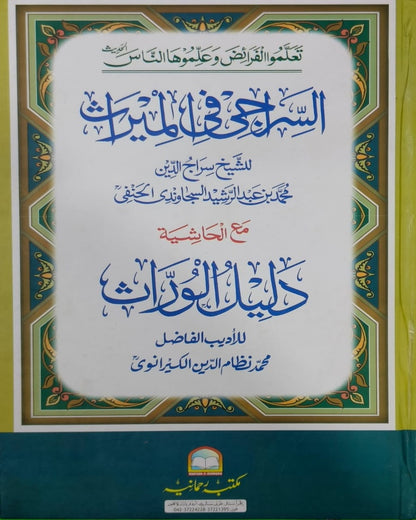 تعلموا الفرائض وعلموها الناس الحدیث
السراجی فی المیراث
للشیخ سراج الدین
محمد بن عبد الرشید السجاوندی الحنفی
مع الحاشیة
دلیل الوراث
للأدیب الفاضل
محمد نظام الدین الکیرانوی
مکتبہ رحمانیہ